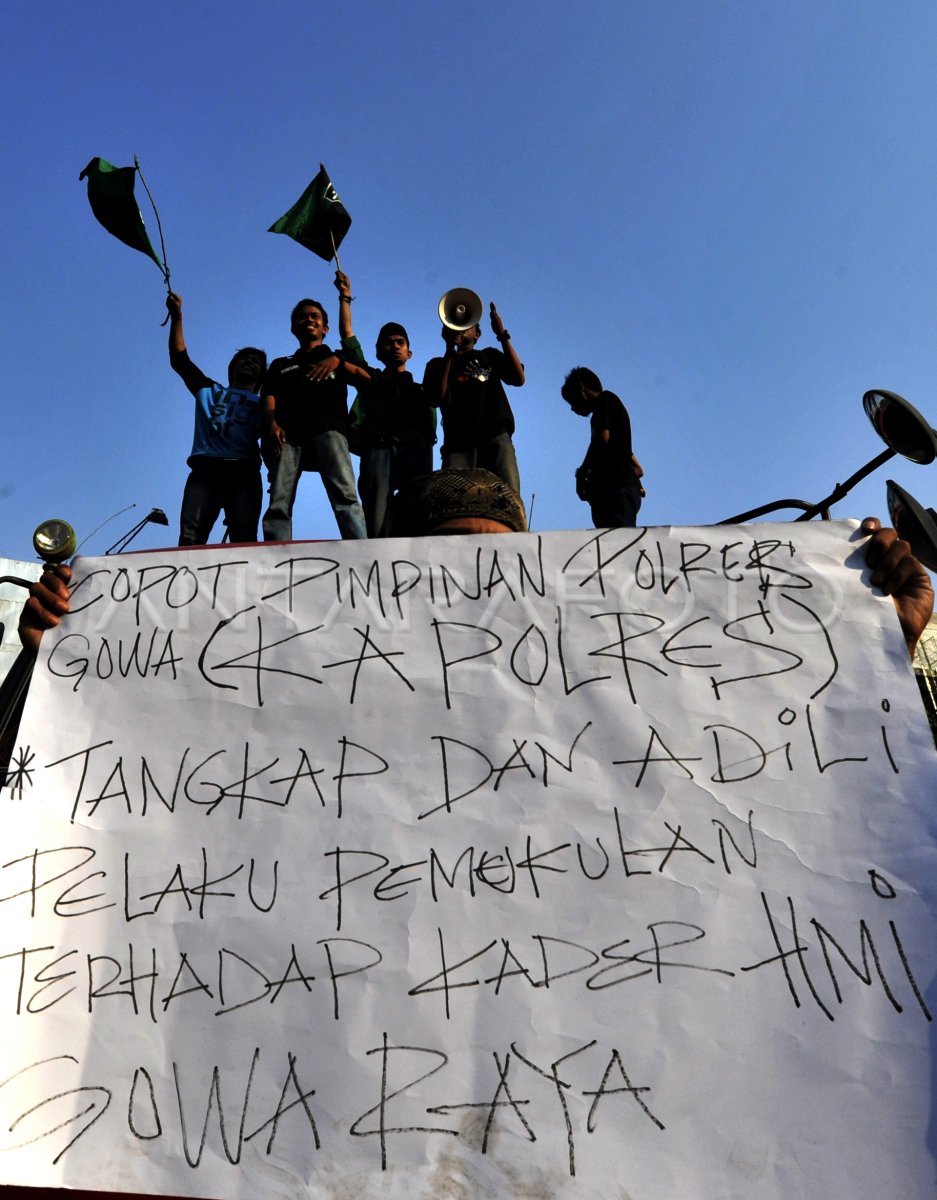 COPOT PIMPINAN POLRES
GOWA (KAPOLRES)
* TANGKAP DAN ADiLi
PELAKU PEMEKULAN
TERHADAP KADER HMI
GOWA RAYA
ANTARAFOTO